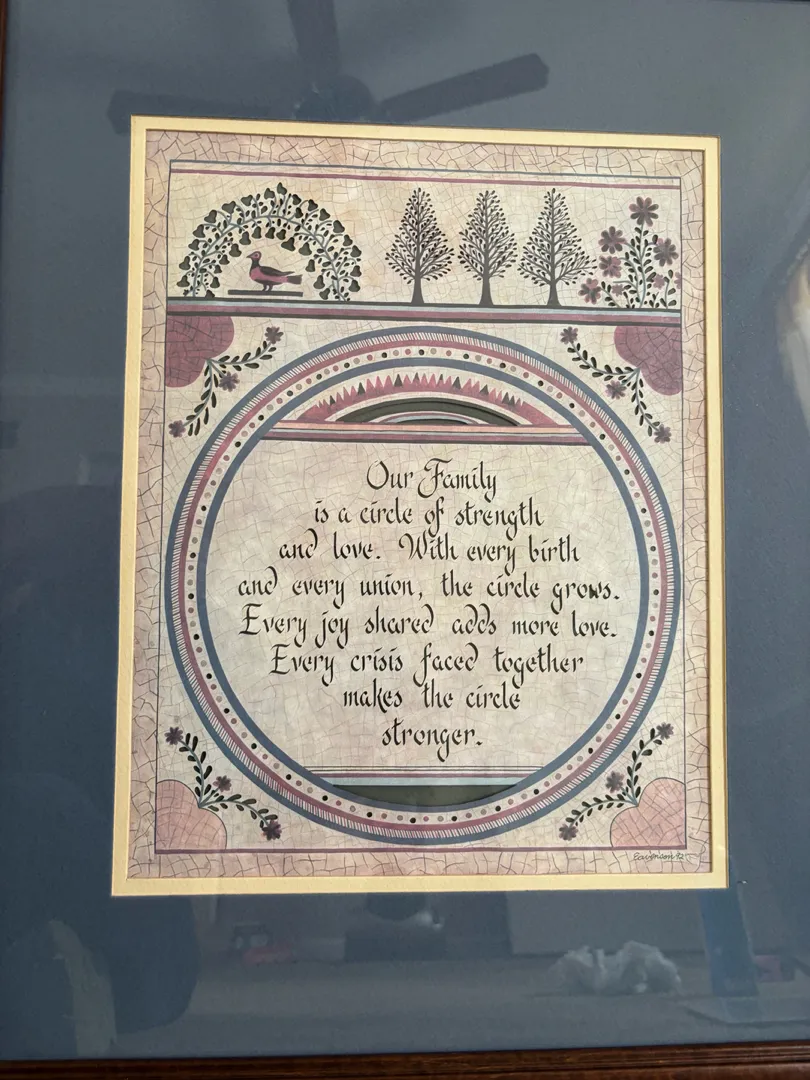 Our Family
is a circle of strength
and love. With every birth
and every union, the circle grows.
Every joy shared adds more love.
Every crisis faced together
makes the circle
stronger.